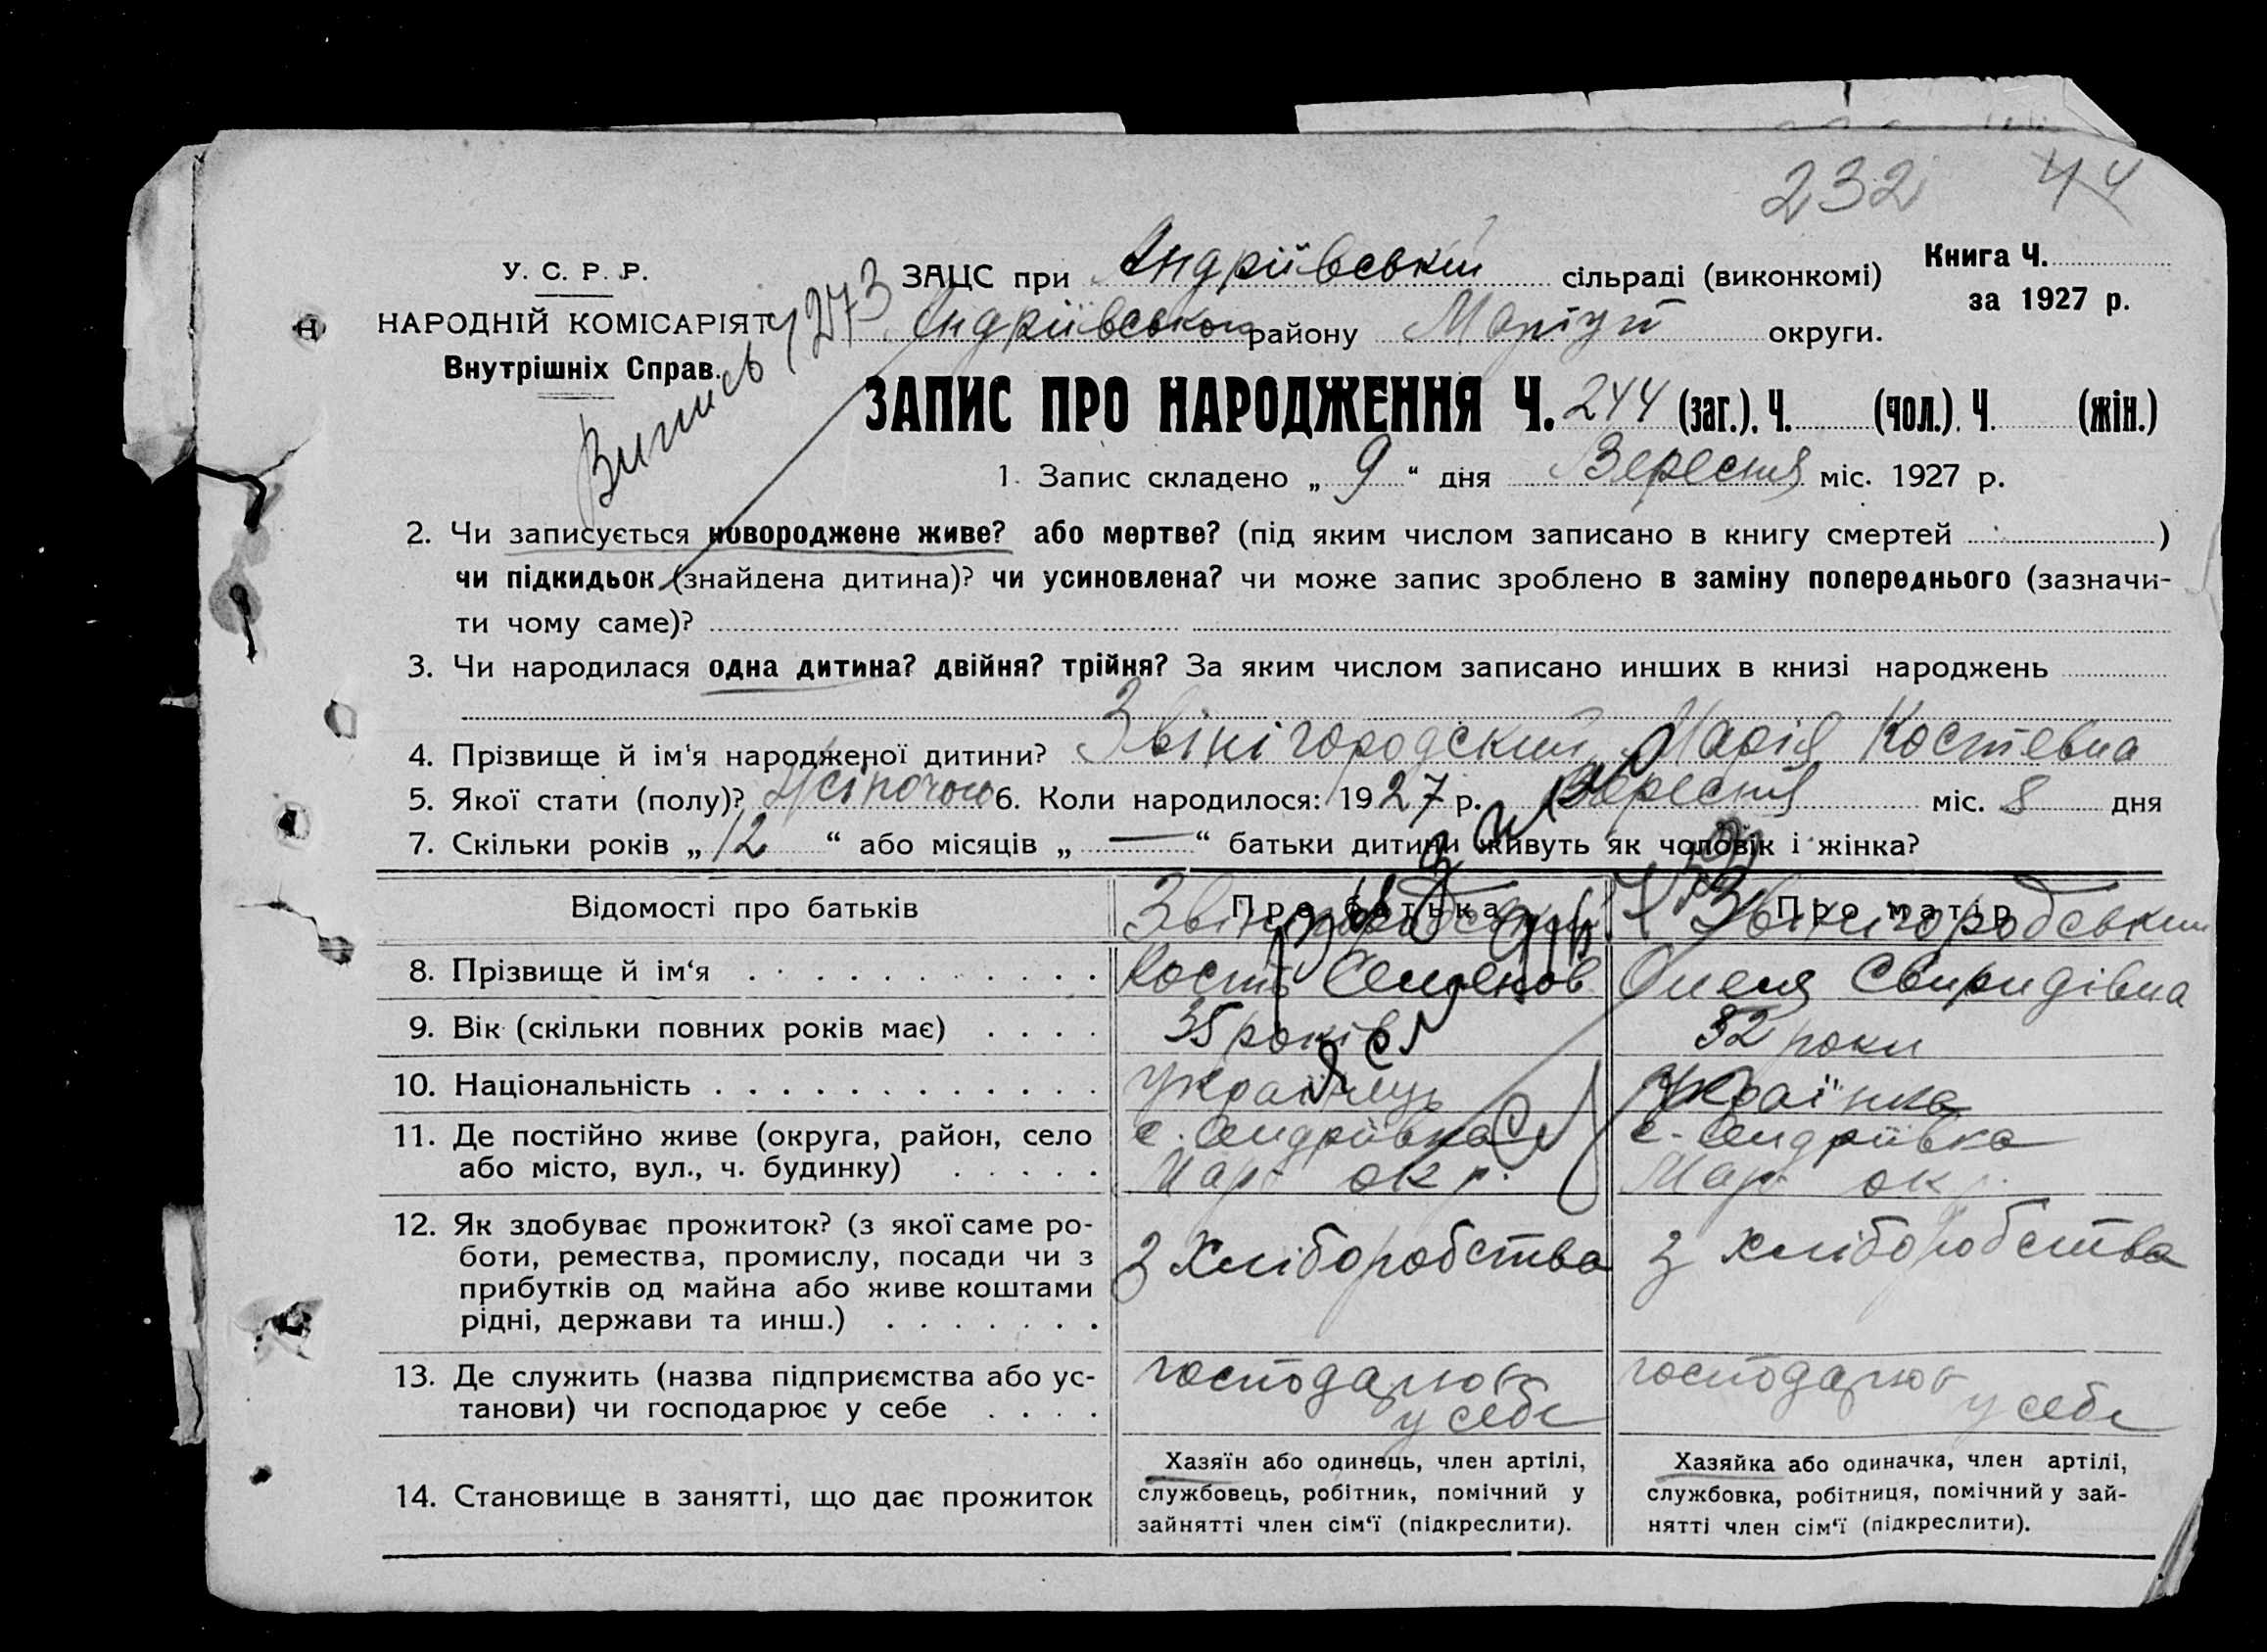 232 44
У. С. Р. Р.
НАРОДНІЙ КОМІСАРІЯТ
Внутрішніх Справ.
Випись 1273
ЗАЦС при Андріївській сільраді (виконкомі)
Книга Ч.
за 1927 р.
Андріївського району Маріуп округи.
ЗАПИС ПРО НАРОДЖЕННЯ Ч. 244 (заг.). Ч. (чол.). Ч. (жін.)
1. Запис складено „ 9 “ дня Вересня міс. 1927 р.
2. Чи записується новороджене живе? або мертве? (під яким числом записано в книгу смертей )
чи підкидьок (знайдена дитина)? чи усиновлена? чи може запис зроблено в заміну попереднього (зазначи-
ти чому саме)?
3. Чи народилася одна дитина? двійня? трійня? За яким числом записано инших в книзі народжень
4. Прізвище й ім'я народженої дитини? Звінігородский Марія Костевна
5. Якої стати (полу)? Жіночого 6. Коли народилося: 1927 р. Вересня міс. 8 дня
7. Скільки років „ 12 “ або місяців „ — “ батьки дитини живуть як чоловік і жінка?
Відомості про батьків Про батька Про матір
Звінігородський Звінігородський
8. Прізвище й ім‘я Кость Семенов Олена Свиридівна
9. Вік (скільки повних років має) 35 років 32 роки
10. Національність Українець Українка
11. Де постійно живе (округа, район, село с. Андріївка с. Андріївка
або місто, вул., ч. будинку) Мар. окр. Мар. окр.
12. Як здобуває прожиток? (з якої саме ро-
боти, ремества, промислу, посади чи з з Хліборобства з хліборобства
прибутків од майна або живе коштами
рідні, держави та инш.)
13. Де служить (назва підприємства або ус- господарює господарює
танови) чи господарює у себе у себе у себе
14. Становище в занятті, що дає прожиток
Хазяїн або одинець, член артілі,
службовець, робітник, помічний у
зайнятті член сім‘ї (підкреслити).
Хазяйка або одиначка, член артілі,
службовка, робітниця, помічний у зай-
нятті член сім‘ї (підкреслити).